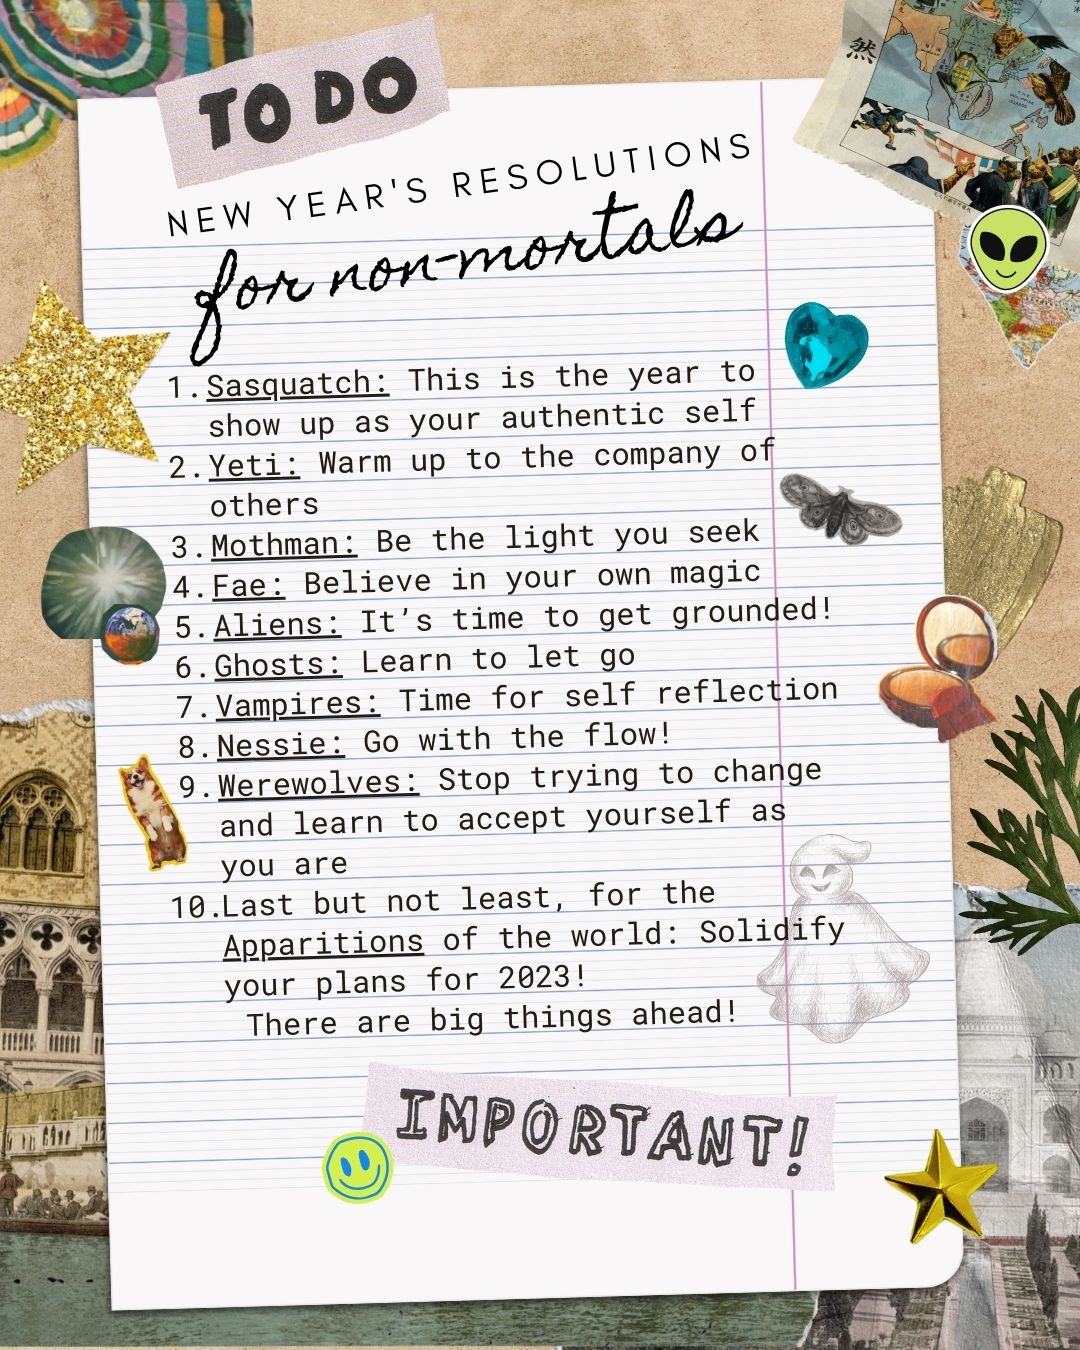 TO DO
NEW YEAR'S RESOLUTIONS
for non-mortals
1. Sasquatch: This is the year to
show up as your authentic self
2. Yeti: Warm up to the company of
others
3. Mothman: Be the light you seek
4. Fae: Believe in your own magic
5. Aliens: It’s time to get grounded!
6. Ghosts: Learn to let go
7. Vampires: Time for self reflection
8. Nessie: Go with the flow!
9. Werewolves: Stop trying to change
and learn to accept yourself as
you are
10. Last but not least, for the
Apparitions of the world: Solidify
your plans for 2023!
There are big things ahead!
IMPORTANT!
然